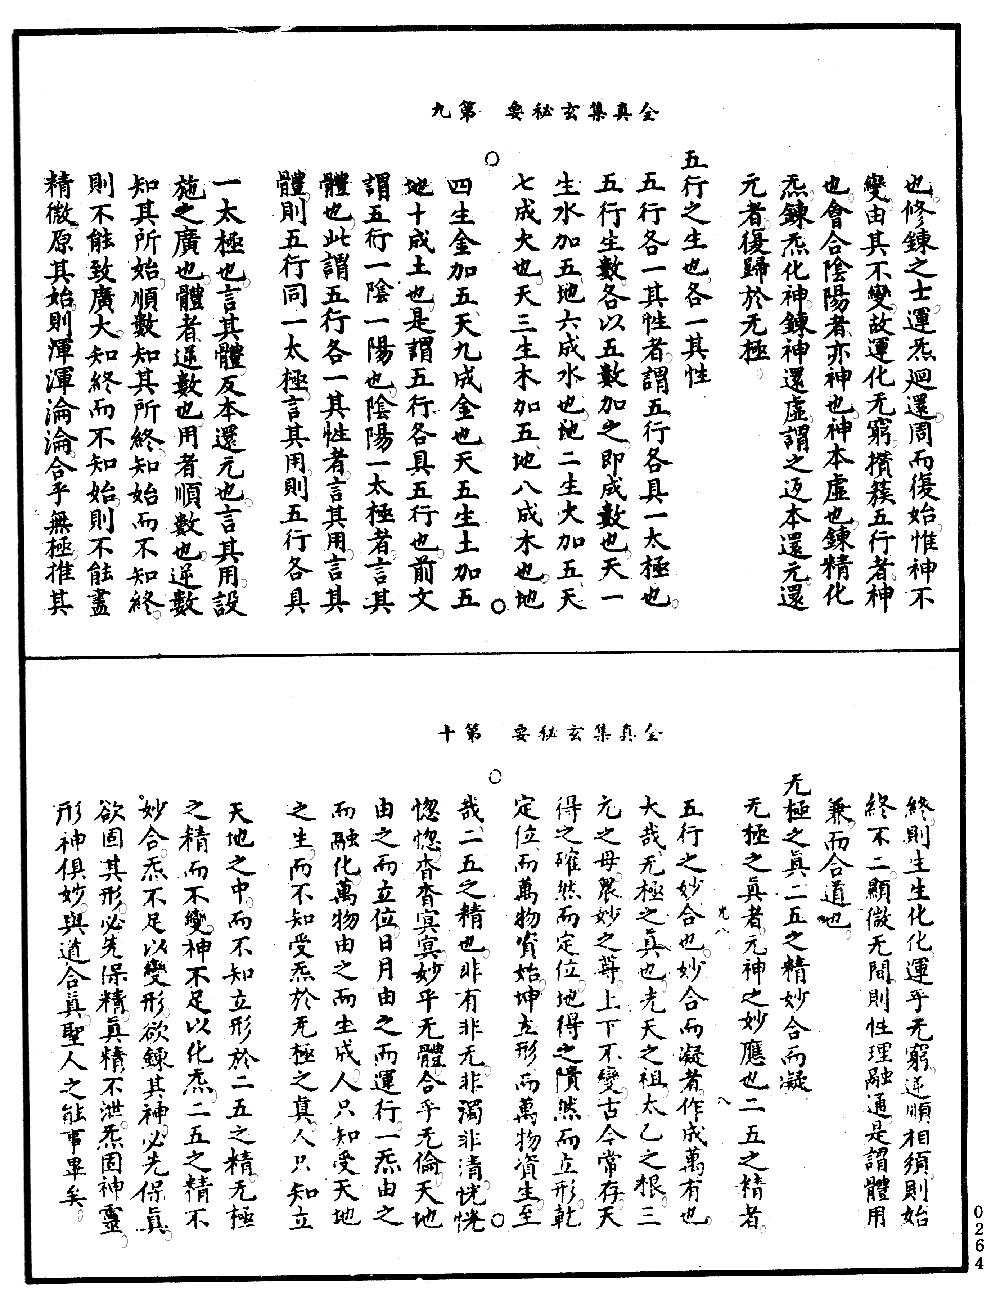 全真集玄秘要　第九
也修鍊之士運炁迴還周而復始惟神不
變由其不變故運化无窮攢簇五行者神
也會合陰陽者亦神也神本虛也鍊精化
炁鍊炁化神鍊神還虛謂之返本還元還
元者復歸於无極
五行之生也各一其性
五行各一其性者謂五行各具一太極也
五行生數各以五數加之即成數也天一
生水加五地六成水也地二生火加五天
七成火也天三生木加五地八成木也地
四生金加五天九成金也天五生土加五
地十成土也是謂五行各具五行也前文
謂五行一陰一陽也陰陽一太極者言其
體也此謂五行各一其性者言其用言其
體則五行同一太極言其用則五行各具
一太極也言其體反本還元也言其用設
施之廣也體者逆數也用者順數也逆數
知其所始順數知其所終知始而不知終
則不能致廣大知終而不知始則不能盡
精微原其始則渾渾淪淪合乎無極推其
全真集玄秘要　第十
終則生生化化運乎无窮逆順相須則始
終不二顯微无間則性理融通是謂體用
兼而合道也
无極之眞二五之精妙合而凝
无極之眞者元神之妙應也二五之精者
五行之妙合也妙合而凝者作成萬有也
光八　八
大哉无極之眞也先天之祖太乙之根三
元之母衆妙之尊上下不變古今常存天
得之確然而定位地得之隤然而立形乾
定位而萬物資始坤立形而萬物資生至
哉二五之精也非有非无非濁非清恍恍
惚惚杳杳冥冥妙乎无體合乎无倫天地
由之而立位日月由之而運行一炁由之
而融化萬物由之而生成人只知受天地
之生而不知受炁於无極之眞人只知立
天地之中而不知立形於二五之精无極
之精而不變神不足以化炁二五之精不
妙合炁不足以變形欲鍊其神必先保眞
欲固其形必先保精眞精不泄炁固神靈
形神俱妙與道合眞聖人之能事畢矣
0264